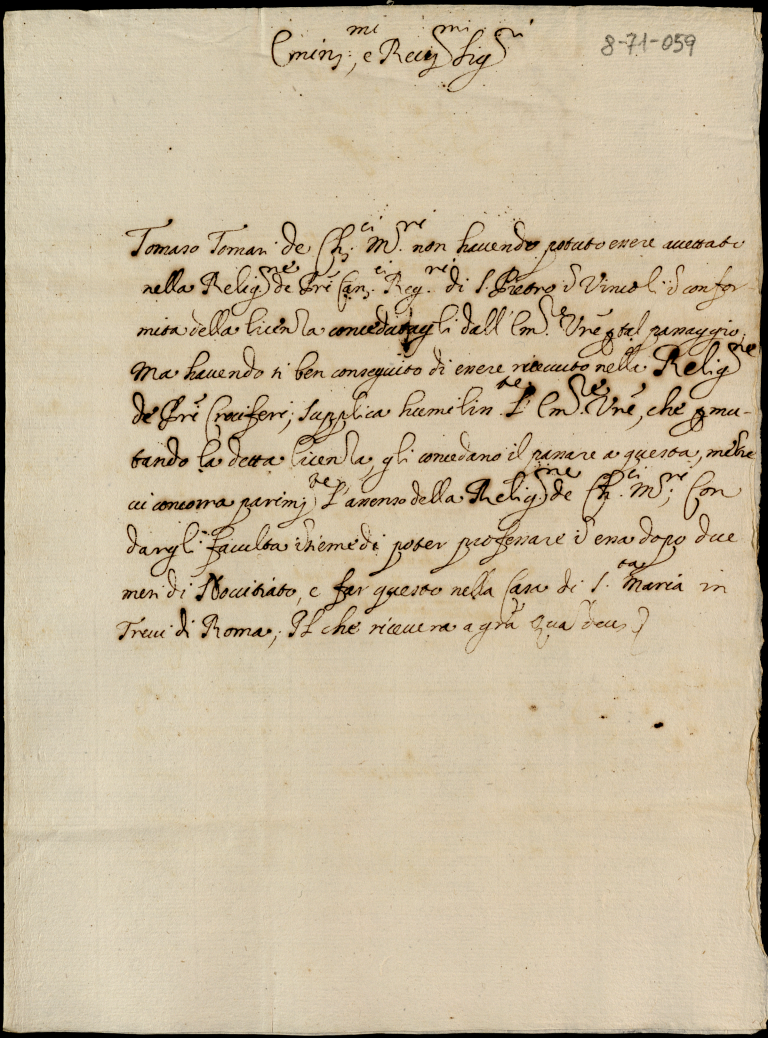 Emin.mi, e Re.mi Sig.ri
8-71-059
Tomaso Tomasi de Ch.ci M.ri non havendo potuto essere accettato
nella Relig.ne de Pri Can.ci Reg.ri di S. Pietro in Vincoli in confor-
mita della licenza concedutagli dall' Em.e Vre p tal passaggio,
Ma havendo si ben conseguito di essere ricevuto nella Relig.ne
de Pri Crociferi; supplica humilm.te l' Em.e Vre, che pmu-
tando la detta licenza, gli concedano il passare a questa, metre
ci concorra parim.te l'assenso della Relig.ne de Ch.ci M.ri; Con
dargli faculta insieme di poter professare in essa dopo due
mesi di Novitiato, e far questo nella Casa di S.ta Maria in
Trevi di Roma; Il che ricevera a gra